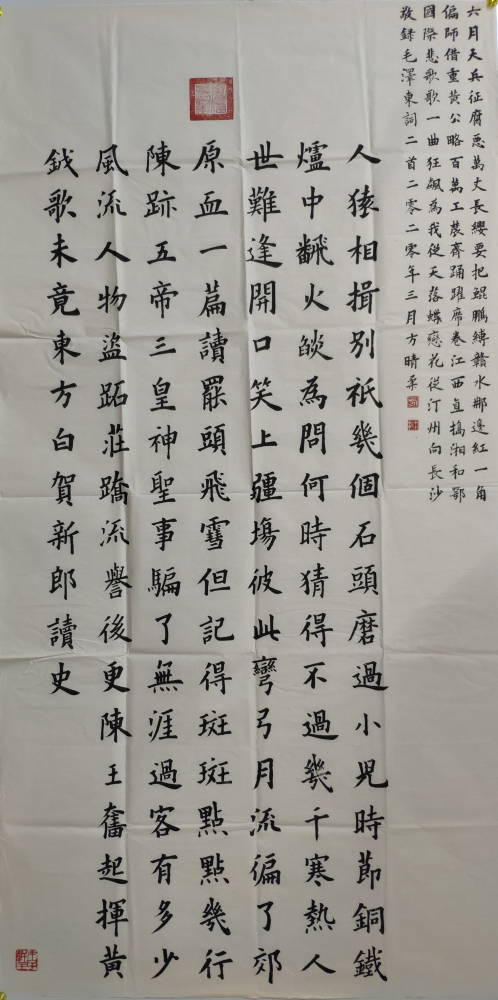 六月天兵征腐惡萬丈長纓要把鯤鵬縛贛水那邊紅一角
偏師借重黃公略百萬工農齊踊躍席卷江西直搗湘和鄂
國際悲歌歌一曲狂飆為我從天落蝶戀花從汀州向長沙
敬録毛澤東詞二首二零二零年三月方晴柔
人猿相揖別祇幾個石頭磨過小兒時節銅鐵
爐中飜火燄為問何時猜得不過幾千寒熱人
世難逢開口笑上疆塲彼此彎弓月流徧了郊
原血一篇讀罷頭飛雪但記得斑斑點點幾行
陳跡五帝三皇神聖事騙了無涯過客有多少
風流人物盜跖莊蹻流譽後更陳王奮起揮黃
鉞歌未竟東方白賀新郎讀史